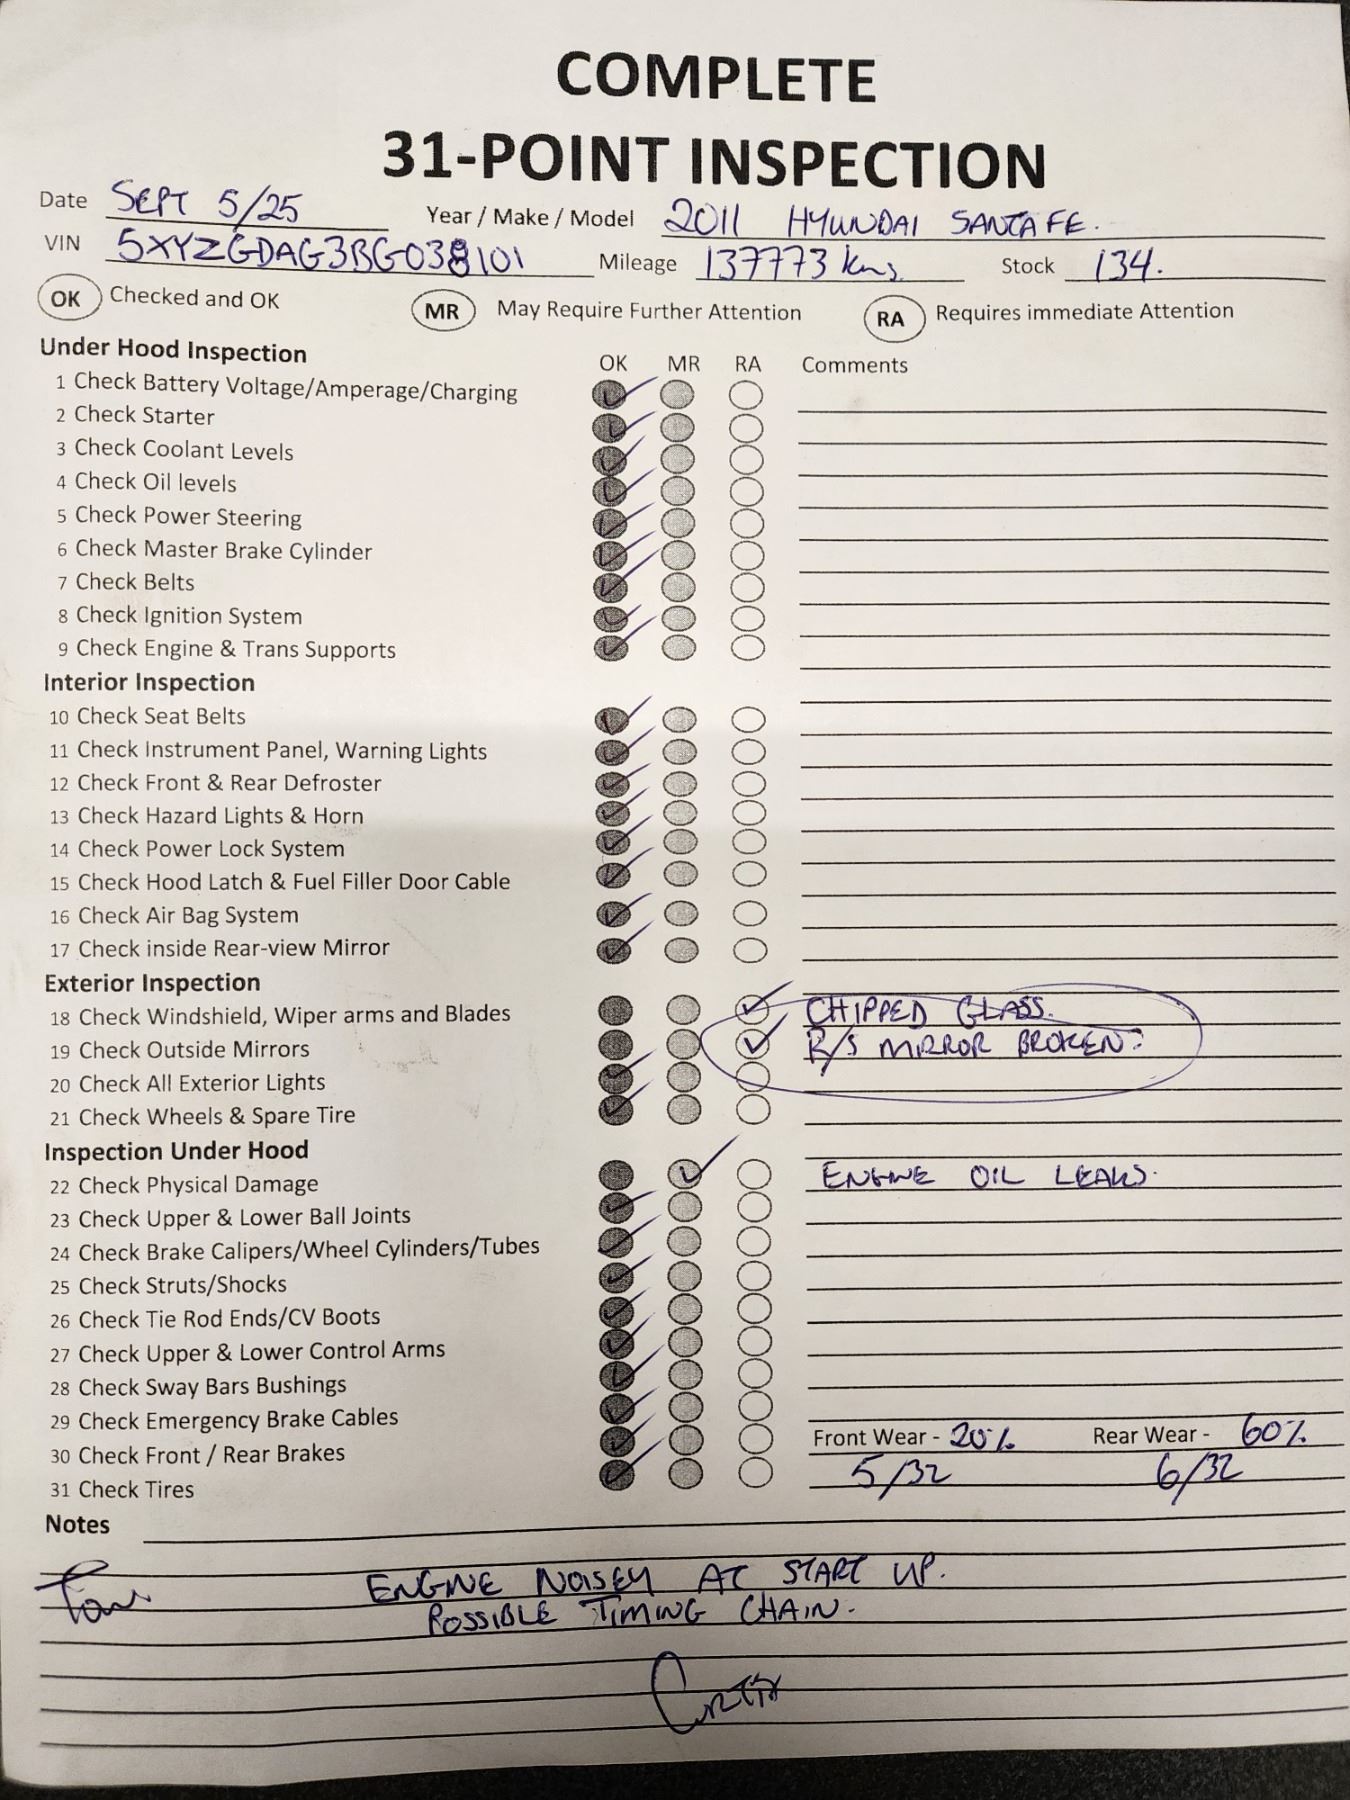 COMPLETE
31-POINT INSPECTION
Date SEPT 5/25 Year / Make / Model 2011 HYUNDAI SANTA FE.
VIN 5XYZGDAG3BG038101 Mileage 137773 kms. Stock 134.
OK Checked and OK MR May Require Further Attention RA Requires immediate Attention
Under Hood Inspection OK MR RA Comments
1 Check Battery Voltage/Amperage/Charging ✓
2 Check Starter ✓
3 Check Coolant Levels ✓
4 Check Oil levels ✓
5 Check Power Steering ✓
6 Check Master Brake Cylinder ✓
7 Check Belts ✓
8 Check Ignition System ✓
9 Check Engine & Trans Supports ✓
Interior Inspection
10 Check Seat Belts ✓
11 Check Instrument Panel, Warning Lights ✓
12 Check Front & Rear Defroster ✓
13 Check Hazard Lights & Horn ✓
14 Check Power Lock System ✓
15 Check Hood Latch & Fuel Filler Door Cable ✓
16 Check Air Bag System ✓
17 Check inside Rear-view Mirror ✓
Exterior Inspection
18 Check Windshield, Wiper arms and Blades ✓ CHIPPED GLASS.
19 Check Outside Mirrors ✓ R/S MIRROR BROKEN.
20 Check All Exterior Lights ✓
21 Check Wheels & Spare Tire ✓
Inspection Under Hood
22 Check Physical Damage ✓ ENGINE OIL LEAKS.
23 Check Upper & Lower Ball Joints ✓
24 Check Brake Calipers/Wheel Cylinders/Tubes ✓
25 Check Struts/Shocks ✓
26 Check Tie Rod Ends/CV Boots ✓
27 Check Upper & Lower Control Arms ✓
28 Check Sway Bars Bushings ✓
29 Check Emergency Brake Cables ✓
30 Check Front / Rear Brakes ✓ Front Wear - 20% Rear Wear - 60%
31 Check Tires ✓ 5/32 6/32
Notes
ENGINE NOISEY AT START UP.
POSSIBLE TIMING CHAIN.